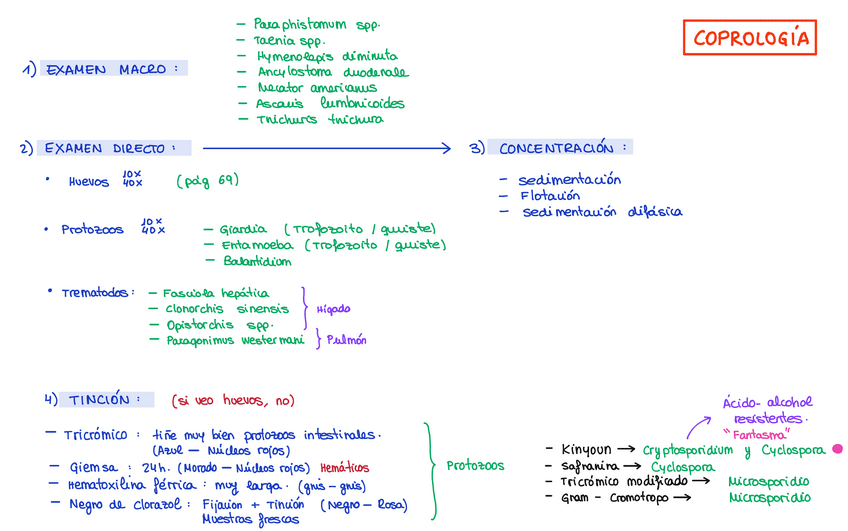 COPROLOGÍA
1) EXAMEN MACRO :
- Paraphistomum spp.
- Taenia spp.
- Hymenolepis diminuta
- Ancylostoma duodenale
- Necator americanus
- Ascaris lumbricoides
- Trichuris trichura
2) EXAMEN DIRECTO :
• Huevos 10x 40x (pág 69)
• Protozoos 10x 40x
- Giardia (Trofozoíto / quiste)
- Entamoeba (Trofozoíto / quiste)
- Balantidium
• Trematodos :
- Fasciola hepática
- Clonorchis sinensis
- Opistorchis spp.
Hígado
- Paragonimus westermani
Pulmón
3) CONCENTRACIÓN :
- sedimentación
- Flotación
- sedimentación difásica
4) TINCIÓN : (si veo huevos, no)
- Tricrómico : tiñe muy bien protozoos intestinales.
(Azul - Núcleos rojos)
- Giemsa : 24h. (Morado - Núcleos rojos) Hemáticos
- Hematoxilina férrica : muy larga. (gris - gris)
- Negro de clorazol : Fijación + Tinción (Negro - Rosa)
Muestras frescas
Protozoos
Ácido-alcohol
resistentes.
"Fantasma"
- Kinyoun → Cryptosporidium y Cyclospora
- Safranina → Cyclospora
- Tricrómico modificado → Microsporidio
- Gram - Cromotropo → Microsporidio